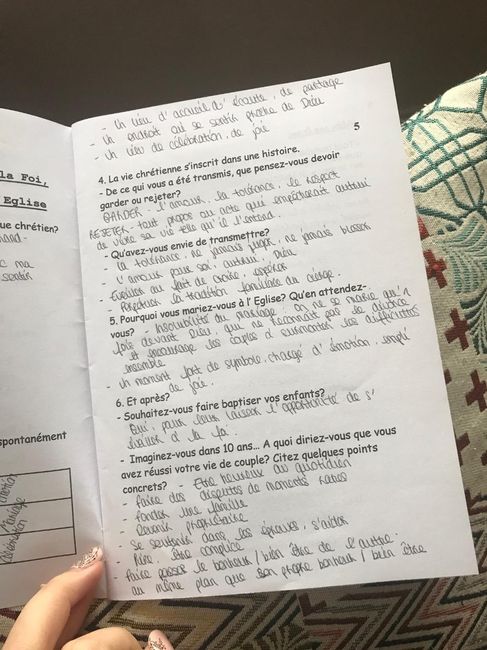 - Un lieu d'accueil, d'écoute, de partage
- Un endroit où se sentir proche de Dieu
- Un lieu de célébration, de joie
5
4. La vie chrétienne s'inscrit dans une histoire.
- De ce qui vous a été transmis, que pensez-vous devoir
garder ou rejeter?
GARDER - l'amour, la tolérance, le respect
REJETER - tout propos ou acte qui empêcherait autrui
de vivre sa vie telle qu'il l'entend.
- Qu'avez-vous envie de transmettre?
- la tolérance, ne jamais juger, ne jamais blesser
- l'amour pour soi, autrui, Dieu
- au fait de croire, espérer
- Perpétuer la tradition familiale du
5. Pourquoi vous mariez-vous à l'Eglise? Qu'en attendez-
vous? - Insolubilité du mariage: on ne se marie qu'1
fois devant Dieu qui ne reconnaît pas le divorce
et encourage les couples à surmonter les difficultés
ensemble
- Un moment fort de symbole, chargé d'émotion, empli
de joie.
6. Et après?
- Souhaitez-vous faire baptiser vos enfants?
Oui, pour leur laisser l'opportunité de s'
à la foi.
- Imaginez-vous dans 10 ans... A quoi diriez-vous que vous
avez réussi votre vie de couple? Citez quelques points
concrets? - Etre heureux au quotidien
- faire des disputes de moments rares
- fonder une famille
- Devenir propriétaire
- Se soutenir dans les épreuves, s'aider
- Rire, être complice
- Faire passer le bonheur / bien être de l'autre
au même plan que son propre bonheur / bien être
la Foi,
Eglise
que chrétien?
c ma
sentir
spontanément